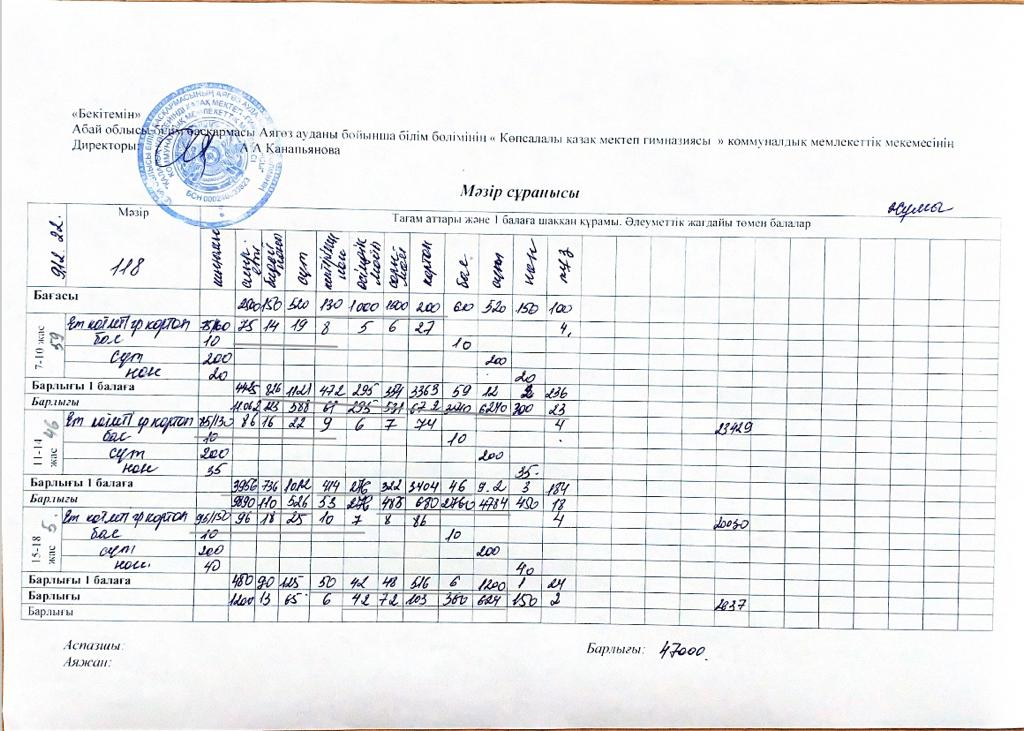 «Бекітемін»
Абай облысы білім басқармасы Аягөз ауданы бойынша білім бөлімінін « Көпсалалы қазак мектеп гимназиясы » коммуналдык мемлекеттік мекемесінін
Директоры: А А Канапьянова
Мәзір сұранысы
Жұмы
Мәзір Тағам аттары және 1 балаға шаққан құрамы. Әлеуметтік жағдайы төмен балалар
118 сиыр еті сүт картоп бал сүт нан тұз
Бағасы 2500 150 520 130 1000 1500 200 600 520 150 100
7-10 жас 59 Ет котлеті гр картоп 75/150 75 14 19 8 5 6 27 4
бал 10 10
сүт 200 200
нан 20 20
Барлығы 1 балаға 4425 826 1121 472 295 354 3363 59 12 2 236
Барлығы 11062 123 588 61 295 531 672 3540 6240 300 23
11-14 жас 46 Ет котлеті гр картоп 86 16 22 9 6 7 74 4 23429
бал 10 10
сүт 200 200
нан 35 35
Барлығы 1 балаға 3956 736 1012 414 276 322 3404 46 9.2 3 184
Барлығы 9890 110 526 53 276 483 680 2760 4784 450 18
15-18 жас 5 Ет котлеті гр картоп 96/150 96 18 25 10 7 8 86 4 20030
бал 10 10
сүт 200 200
нан 40 40
Барлығы 1 балаға 480 90 125 50 42 48 516 6 1200 1 24
Барлығы 1200 13 65 6 42 72 103 360 624 150 2 2637
Барлығы
Аспазшы: Барлығы: 47000
Аяжан: